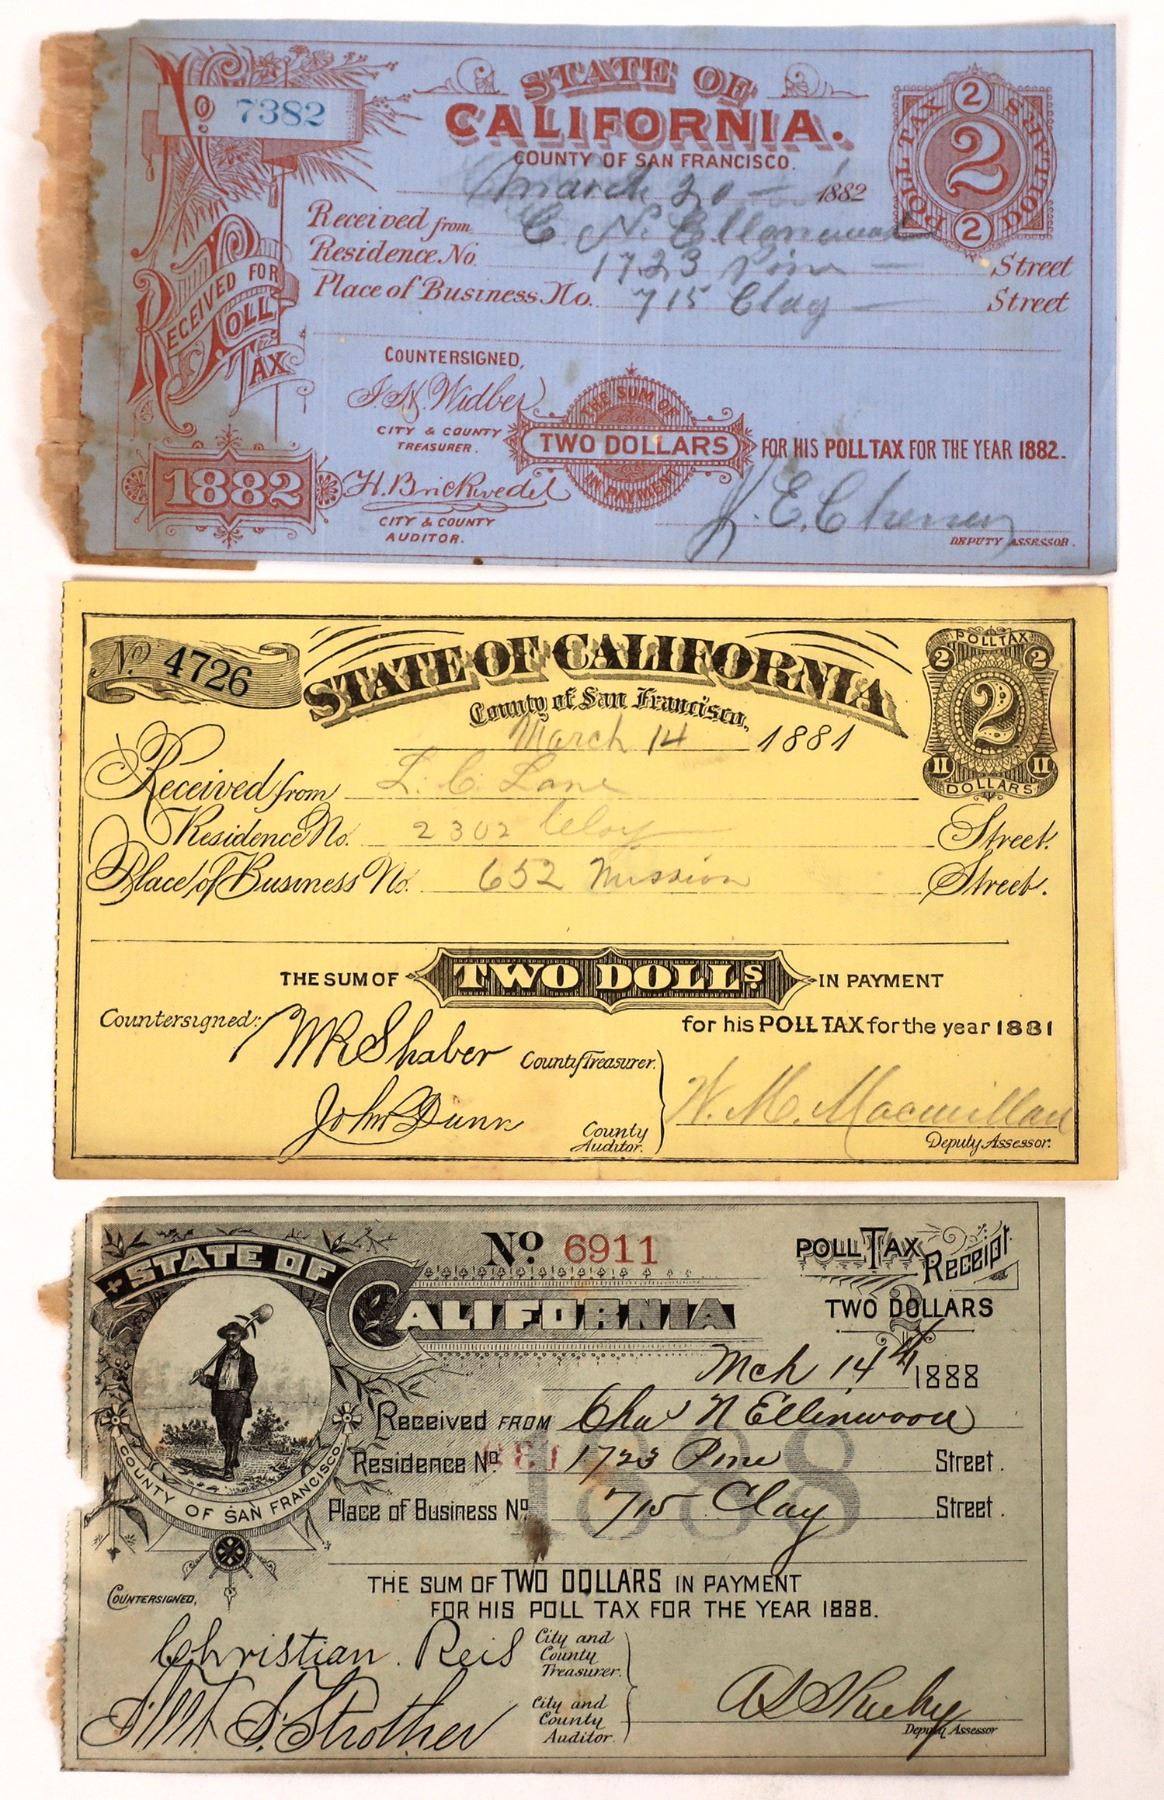 No 7382
STATE OF
CALIFORNIA.
COUNTY OF SAN FRANCISCO.
POLL TAX 2 DOLLARS
2
POLL TAX 2 DOLLARS
March 20 1882
Received from C. N. Ellinwood
Residence No. 1723 Pine Street
Place of Business No. 715 Clay Street
RECEIVED FOR
POLL
TAX
1882
COUNTERSIGNED,
CITY & COUNTY
TREASURER.
H. Brickwedel
CITY & COUNTY
AUDITOR.
THE SUM OF
TWO DOLLARS
IN PAYMENT
FOR HIS POLL TAX FOR THE YEAR 1882.
DEPUTY ASSESSOR.
No 4726
STATE OF CALIFORNIA
County of San Francisco.
POLL TAX
2 2
2
II II
DOLLARS
March 14 1881
Received from L. C. Lane
Residence No. 2302 Clay Street.
Place of Business No. 652 Mission Street.
THE SUM OF TWO DOLLS IN PAYMENT
for his POLL TAX for the year 1881
Countersigned: WR Shaber County Treasurer.
John Dunn County
Auditor.
W. M. Macmillan
Deputy Assessor.
STATE OF
CALIFORNIA
COUNTY OF SAN FRANCISCO
No 6911
POLL TAX Receipt
TWO DOLLARS
2
Mch 14th 1888
Received FROM Chas N Ellinwood
Residence No 1723 Pine Street.
Place of Business No 715 Clay Street.
1888
THE SUM OF TWO DOLLARS IN PAYMENT
FOR HIS POLL TAX FOR THE YEAR 1888.
COUNTERSIGNED,
Christian Reis City and
County
Treasurer.
Strother City and
County
Auditor.
Deputy Assessor